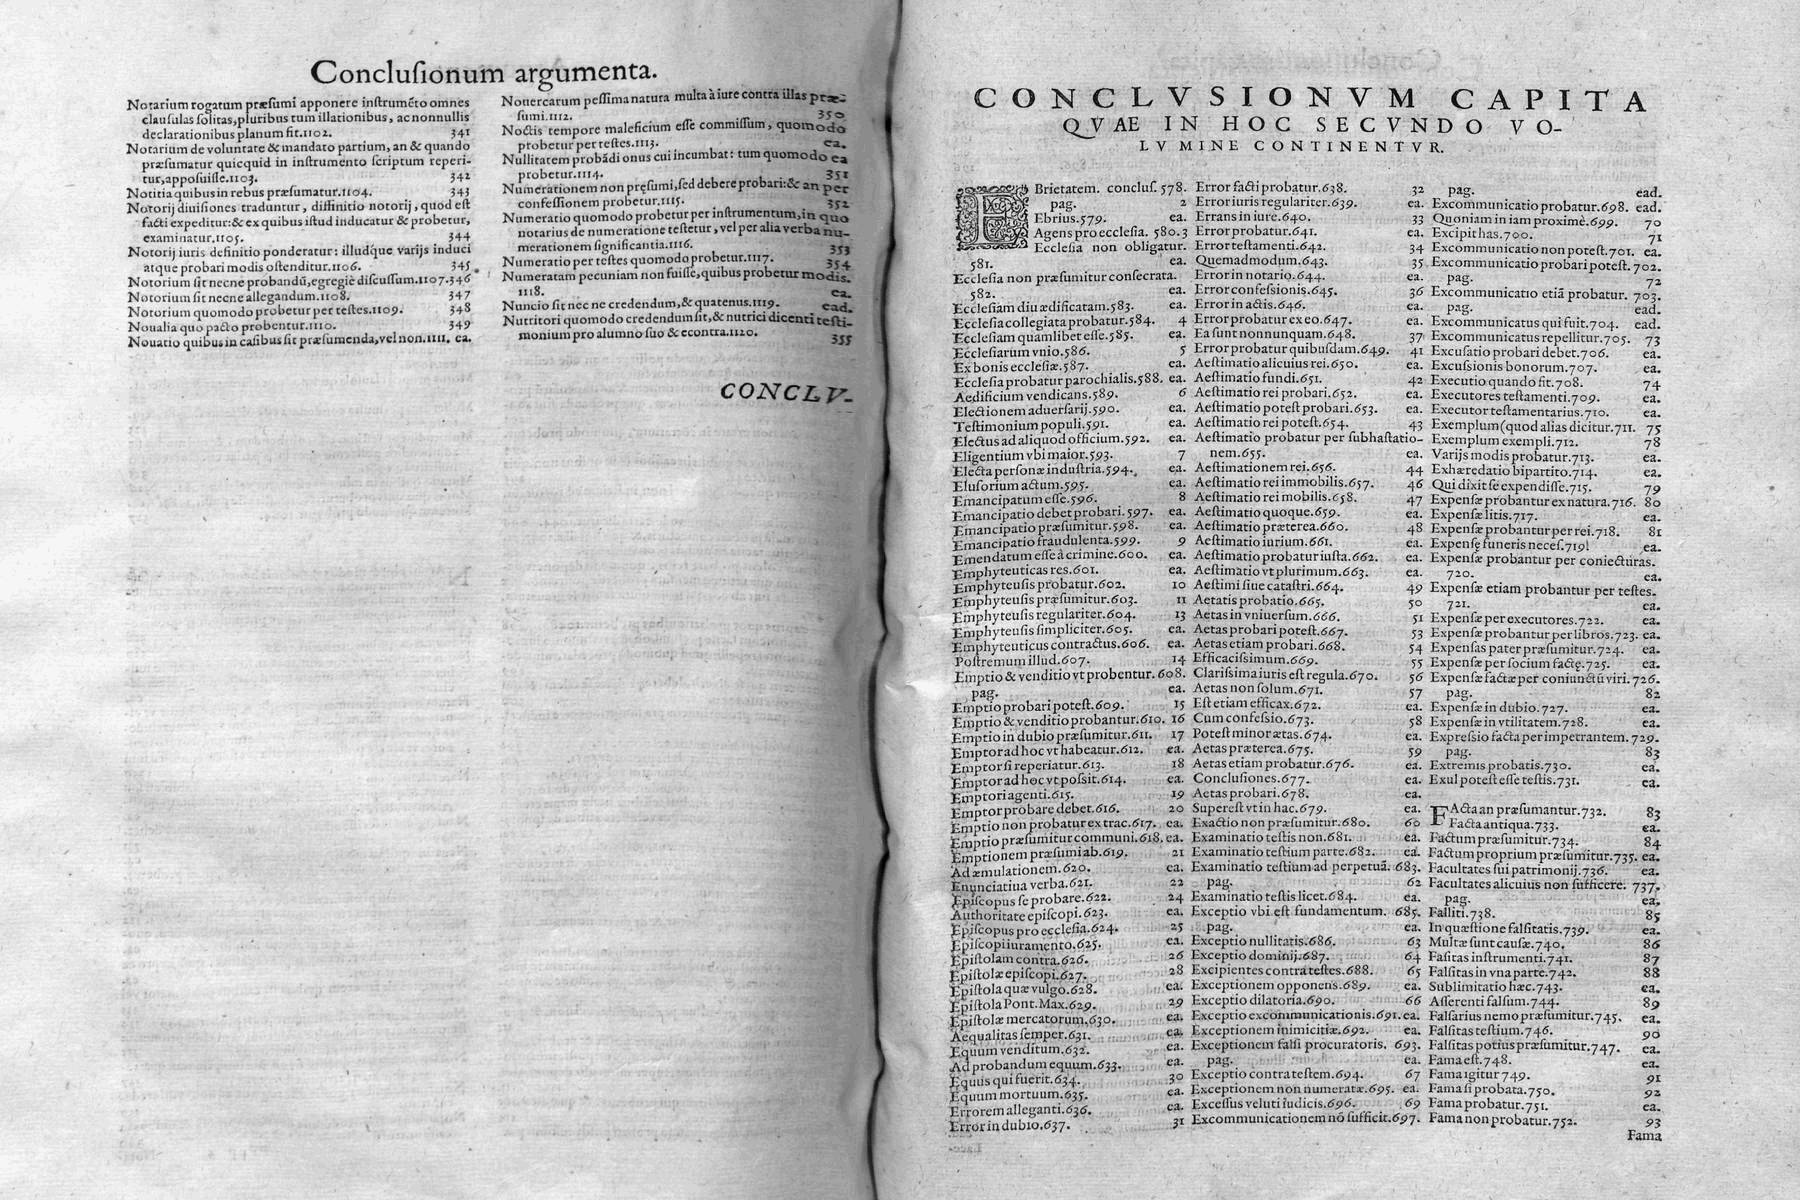 Conclusionum argumenta.
Notarium rogatum præsumi apponere instrumẽto omnes
clausulas solitas, pluribus tum illationibus, ac nonnullis
declarationibus planum fit. 1102. 341
Notarium de voluntate & mandato partium, an & quando
præsumatur quicquid in instrumento scriptum reperi-
tur, apposuisse. 1103. 342
Notitia quibus in rebus præsumatur. 1104. 343
Notorij diuisiones traduntur, diffinitio notorij, quod est
facti expeditur: & ex quibus istud inducatur & probetur,
examinatur. 1105. 344
Notorij iuris definitio ponderatur: illudq́ue varijs induci
atque probari modis ostenditur. 1106. 345
Notorium sit necne probandũ, egregiè discussum. 1107. 346
Notorium sit necne allegandum. 1108. 347
Notorium quomodo probetur per testes. 1109. 348
Noualia quo pacto probentur. 1110. 349
Nouatio quibus in casibus sit præsumenda, vel non. 1111. ea.
Nouercarum pessima natura multa à iure contra illas præ-
sumi. 1112. 350
Noctis tempore maleficium esse commissum, quomodo
probetur per testes. 1113. ea.
Nullitatem probãdi onus cui incumbat: tum quomodo ea
probetur. 1114. 351
Numerationem non pręsumi, sed debere probari: & an per
confessionem probetur. 1115. 352
Numeratio quomodo probetur per instrumentum, in quo
notarius de numeratione testetur, vel per alia verba nu-
merationem significantia. 1116. 353
Numeratio per testes quomodo probetur. 1117. 354
Numeratam pecuniam non fuisse, quibus probetur modis.
1118. ea.
Nuncio sit nec ne credendum, & quatenus. 1119. ead.
Nutritori quomodo credendum sit, & nutrici dicenti testi-
monium pro alumno suo & econtra. 1120. 355
CONCLV-
CONCLVSIONVM CAPITA
QVAE IN HOC SECVNDO VO-
LVMINE CONTINENTVR.
EBrietatem. conclus. 578.
pag. 2
Ebrius. 579. ea.
Agens pro ecclesia. 580. 3
Ecclesia non obligatur.
581. ea.
Ecclesia non præsumitur consecrata.
582. ea.
Ecclesiam diu ædificatam. 583. ea.
Ecclesia collegiata probatur. 584. 4
Ecclesiam quamlibet esse. 585. ea.
Ecclesiarum vnio. 586. 5
Ex bonis ecclesiæ. 587. ea.
Ecclesia probatur parochialis. 588. ea.
Aedificium vendicans. 589. 6
Electionem aduersarij. 590. ea.
Testimonium populi. 591. ea.
Electus ad aliquod officium. 592. ea.
Eligentium vbi maior. 593. 7
Electa personæ industria. 594. ea.
Elusorium actum. 595. ea.
Emancipatum esse. 596. 8
Emancipatio debet probari. 597. ea.
Emancipatio præsumitur. 598. ea.
Emancipatio fraudulenta. 599. 9
Emendatum esse à crimine. 600. ea.
Emphyteuticas res. 601. ea.
Emphyteusis probatur. 602. 10
Emphyteusis præsumitur. 603. 11
Emphyteusis regulariter. 604. 13
Emphyteusis simpliciter. 605. ea.
Emphyteuticus contractus. 606. ea.
Postremum illud. 607. 14
Emptio & venditio vt probentur. 608.
pag. ea.
Emptio probari potest. 609. 15
Emptio & venditio probantur. 610. 16
Emptio in dubio præsumitur. 611. 17
Emptor ad hoc vt habeatur. 612. ea.
Emptor si reperiatur. 613. 18
Emptor ad hoc vt possit. 614. ea.
Emptori agenti. 615. 19
Emptor probare debet. 616. 20
Emptio non probatur ex trac. 617. ea.
Emptio præsumitur communi. 618. ea.
Emptionem præsumi ab. 619. 21
Ad æmulationem. 620. ea.
Enunciatiua verba. 621. 22
Episcopus se probare. 622. 24
Authoritate episcopi. 623. ea.
Episcopus pro ecclesia. 624. 25
Episcopi iuramento. 625. ea.
Epistolam contra. 626. 26
Epistolæ episcopi. 627. 28
Epistola quæ vulgo. 628. ea.
Epistola Pont. Max. 629. 29
Epistolæ mercatorum. 630. ea.
Aequalitas semper. 631. ea.
Equum venditum. 632. ea.
Ad probandum equum. 633. ea.
Equus qui fuerit. 634. 30
Equum mortuum. 635. ea.
Errorem alleganti. 636. ea.
Error in dubio. 637. 31
Error facti probatur. 638. 32
Error iuris regulariter. 639. ea.
Errans in iure. 640. 33
Error probatur. 641. ea.
Error testamenti. 642. 34
Quemadmodum. 643. 35
Error in notario. 644. ea.
Error confessionis. 645. 36
Error in actis. 646. ea.
Error probatur ex eo. 647. ea.
Ea sunt nonnunquam. 648. 37
Error probatur quibusdam. 649. 41
Aestimatio alicuius rei. 650. ea.
Aestimatio fundi. 651. 42
Aestimatio rei probari. 652. ea.
Aestimatio potest probari. 653. ea.
Aestimatio rei potest. 654. 43
Aestimatio probatur per subhastatio-
nem. 655. ea.
Aestimationem rei. 656. 44
Aestimatio rei immobilis. 657. 46
Aestimatio rei mobilis. 658. 47
Aestimatio quoque. 659. ea.
Aestimatio præterea. 660. 48
Aestimatio iurium. 661. ea.
Aestimatio probatur iusta. 662. ea.
Aestimatio vt plurimum. 663. ea.
Aestimi siue catastri. 664. 49
Aetatis probatio. 665. 50
Aetas in vniuersum. 666. 51
Aetas probari potest. 667. 53
Aetas etiam probari. 668. 54
Efficacissimum. 669. 55
Clarissima iuris est regula. 670. 56
Aetas non solum. 671. 57
Est etiam efficax. 672. ea.
Cum confessio. 673. 58
Potest minor ætas. 674. ea.
Aetas præterea. 675. 59
Aetas etiam probatur. 676. ea.
Conclusiones. 677. ea.
Aetas probari. 678. ea.
Superest vt in hac. 679. ea.
Exactio non præsumitur. 680. 60
Examinatio testis non. 681. ea.
Examinatio testium parte. 682. ea.
Examinatio testium ad perpetuã. 683.
pag. 62
Examinatio testis licet. 684. ea.
Exceptio vbi est fundamentum. 685.
pag. ea.
Exceptio nullitatis. 686. 63
Exceptio dominij. 687. 64
Excipientes contra testes. 688. 65
Exceptionem opponens. 689. ea.
Exceptio dilatoria. 690. 66
Exceptio excommunicationis. 691. ea.
Exceptionem inimicitiæ. 692. ea.
Exceptionem falsi procuratoris. 693.
pag. ea.
Exceptio contra testem. 694. 67
Exceptionem non numeratæ. 695. ea.
Excessus veluti iudicis. 696. 69
Excommunicationem nõ sufficit. 697.
pag. ead.
Excommunicatio probatur. 698. ead.
Quoniam in iam proximè. 699. 70
Excipit has. 700. 71
Excommunicatio non potest. 701. ea.
Excommunicatio probari potest. 702.
pag. 72
Excommunicatio etiã probatur. 703.
pag. ead.
Excommunicatus qui fuit. 704. ead.
Excommunicatus repellitur. 705. 73
Excusatio probari debet. 706. ea.
Excussionis bonorum. 707. ea.
Executio quando fit. 708. 74
Executores testamenti. 709. ea.
Executor testamentarius. 710. ea.
Exemplum (quod alias dicitur. 711. 75
Exemplum exempli. 712. 78
Varijs modis probatur. 713. ea.
Exhæredatio bipartito. 714. ea.
Qui dixit se expendisse. 715. 79
Expensæ probantur ex natura. 716. 80
Expensæ litis. 717. ea.
Expensæ probantur per rei. 718. 81
Expensę funeris neces. 719. ea.
Expensæ probantur per coniecturas.
720. ea.
Expensæ etiam probantur per testes.
721. ea.
Expensæ per executores. 722. ea.
Expensæ probantur per libros. 723. ea.
Expensas pater præsumitur. 724. ea.
Expensæ per socium factę. 725. ea.
Expensæ factæ per coniunctũ viri. 726.
pag. 82
Expensæ in dubio. 727. ea.
Expensæ in vtilitatem. 728. ea.
Expressio facta per impetrantem. 729.
pag. 83
Extremis probatis. 730. ea.
Exul potest esse testis. 731. ea.
FActa an præsumantur. 732. 83
Facta antiqua. 733. ea.
Factum præsumitur. 734. 84
Factum proprium præsumitur. 735. ea.
Facultates sui patrimonij. 736. ea.
Facultates alicuius non sufficere. 737.
pag. ea.
Falliti. 738. 85
In quæstione falsitatis. 739. ea.
Multæ sunt causæ. 740. 86
Fasitas instrumenti. 741. 87
Falsitas in vna parte. 742. 88
Sublimitatio hæc. 743. ea.
Asserenti falsum. 744. 89
Falsarius nemo præsumitur. 745. ea.
Falsitas testium. 746. 90
Falsitas potius præsumitur. 747. ea.
Fama est. 748. ea.
Fama igitur 749. 91
Fama si probata. 750. 92
Fama probatur. 751. ea.
Fama non probatur. 752. 93
Fama